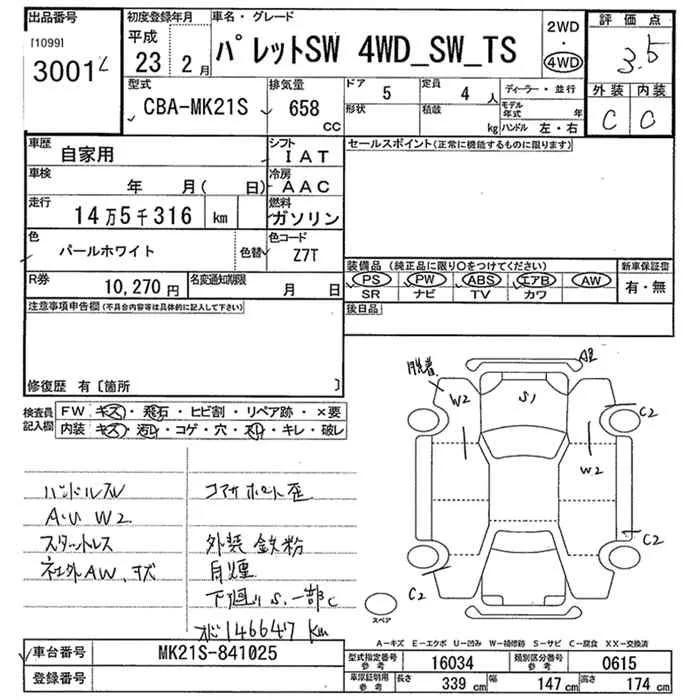 出品番号 初度登録年月 車名・グレード 評価点
[1099] 3001 平成 23 2月 パレットSW 4WD_SW_TS 2WD・4WD 3.5
型式 排気量 ドア 定員 ディーラー・並行 外装 内装
CBA-MK21S 658 CC 5 4人 モデル年式 年 C C
形状 積載 kg ハンドル 左・右
車歴 自家用 シフト IAT セールスポイント(正常に機能するものに限ります)
車検 年 月( 日) 冷房 AAC
走行 14万5千316 km 燃料 ガソリン
色 パールホワイト 色替 色コード Z7T
装備品 (純正品に限り○をつけてください) 新車保証書
R券 10,270円 名変通知期限 月 日 PS PW ABS エアB AW 有・無
SR ナビ TV カワ
注意事項申告欄(不具合内容等は具体的に記入して下さい) 後日品
修復歴 有〔箇所 〕
検査員記入欄 FW キズ・飛石・ヒビ割・リペア跡・×要
内装 キズ・汚レ・コゲ・穴・スレ・キレ・破レ
脱着 W2 S1 A2 C2
W2
C2
C2
スペア
ハンドルスレ コアサポート歪
A・U W2
スタットレス 外装 鉄粉
社外AW、キズ 有煙
下廻りS、一部C
メーター146647km
A-キズ E-エクボ U-凹み W-補修跡 S-サビ C-腐食 XX-交換済
車台番号 MK21S-841025 型式指定番号 参考 16034 類別区分番号 参考 0615
登録番号 車庫証明用 参考 長さ 339 cm 幅 147 cm 高さ 174 cm